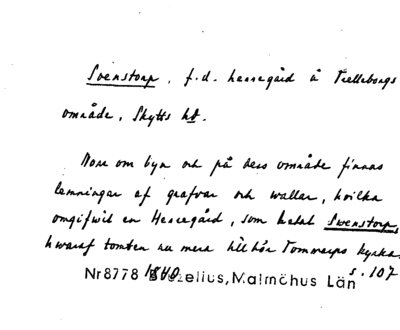 Svenstorp, f.d. herregård å Trelleborgs
område, Skytts hd.
Norr om byn och på dess område finnas
lemningar af grafvar och wallar, hvilka
omgifwit en Herregård, som hetat Swenstorp,
hwaraf tomten nu mera tillhör Tommarps kyrka.
Nr 8778 1840 elius, Malmöhus Län s. 107